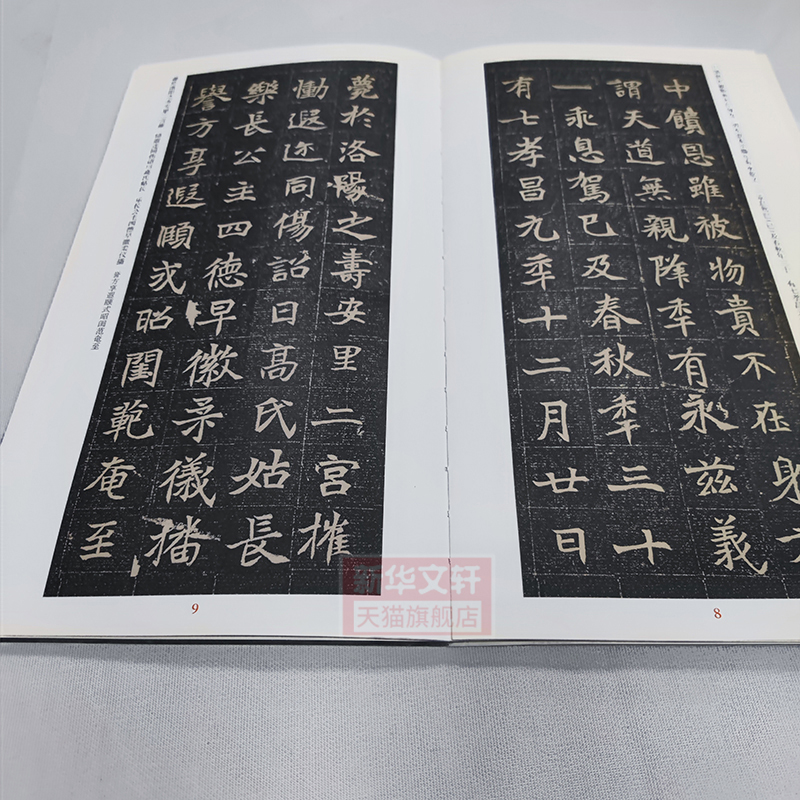 中饋恩雖被物貴不在身
謂天道無親降年有永兹義
一乘息駕巳及春秋年三十
有七孝昌元年十二月廿日
8
薨於洛陽之壽安里二宮摧
慟遐迩同傷詔曰高氏姑長
樂長公主四德早徽柔儀播
譽方亨遐頤式昭閨範奄至
9
新华文轩
天猫旗舰店